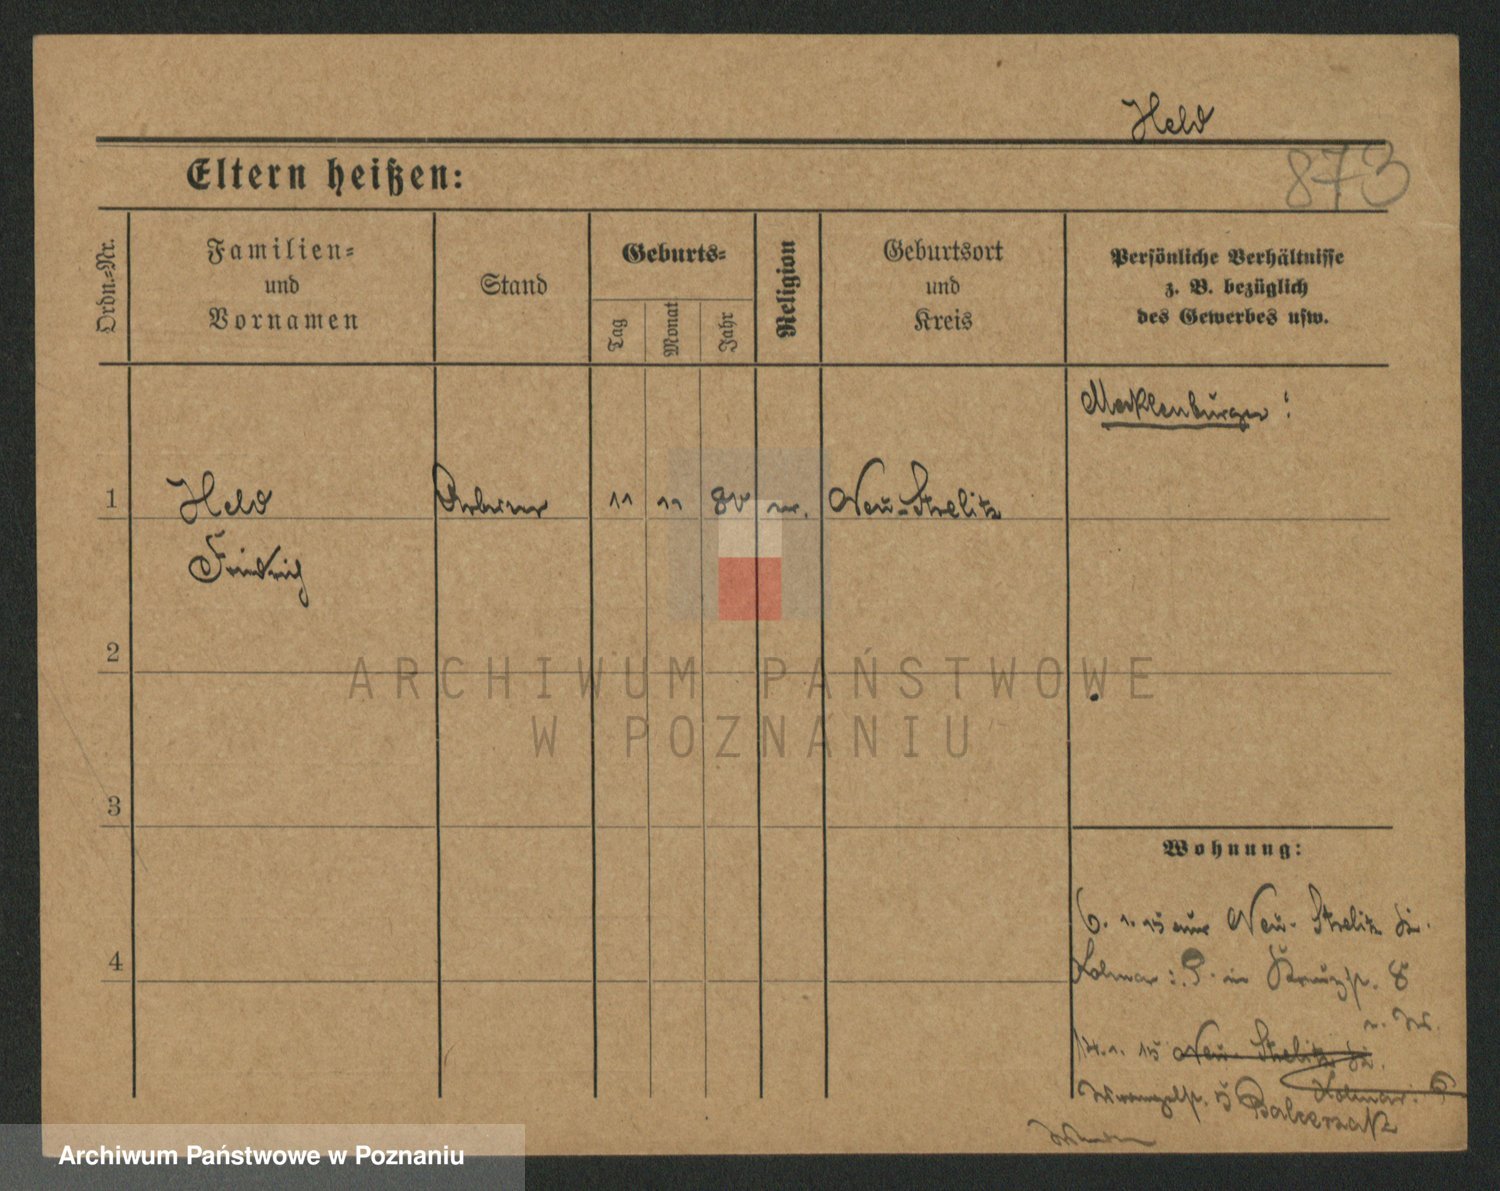 Held
873
Eltern heißen:
Ordn.-Nr.
Familien-
und
Vornamen
Stand
Geburts-
Tag
Monat
Jahr
Religion
Geburtsort
und
Kreis
Persönliche Verhältnisse
z. B. bezüglich
des Gewerbes usw.
Mecklenburger!
1
Held
Arbeiter
11
11
80
Neu-Strelitz
Friedrich
2
ARCHIWUM PAŃSTWOWE
W POZNANIU
3
Wohnung:
6. 1. 15 aus Neu-Strelitz
4
Kolmar in Kreuzstr. 8
14. 1. 15 Neu-Strelitz
Kolmar
Wrangelstr. 5 Balcerzak
Archiwum Państwowe w Poznaniu